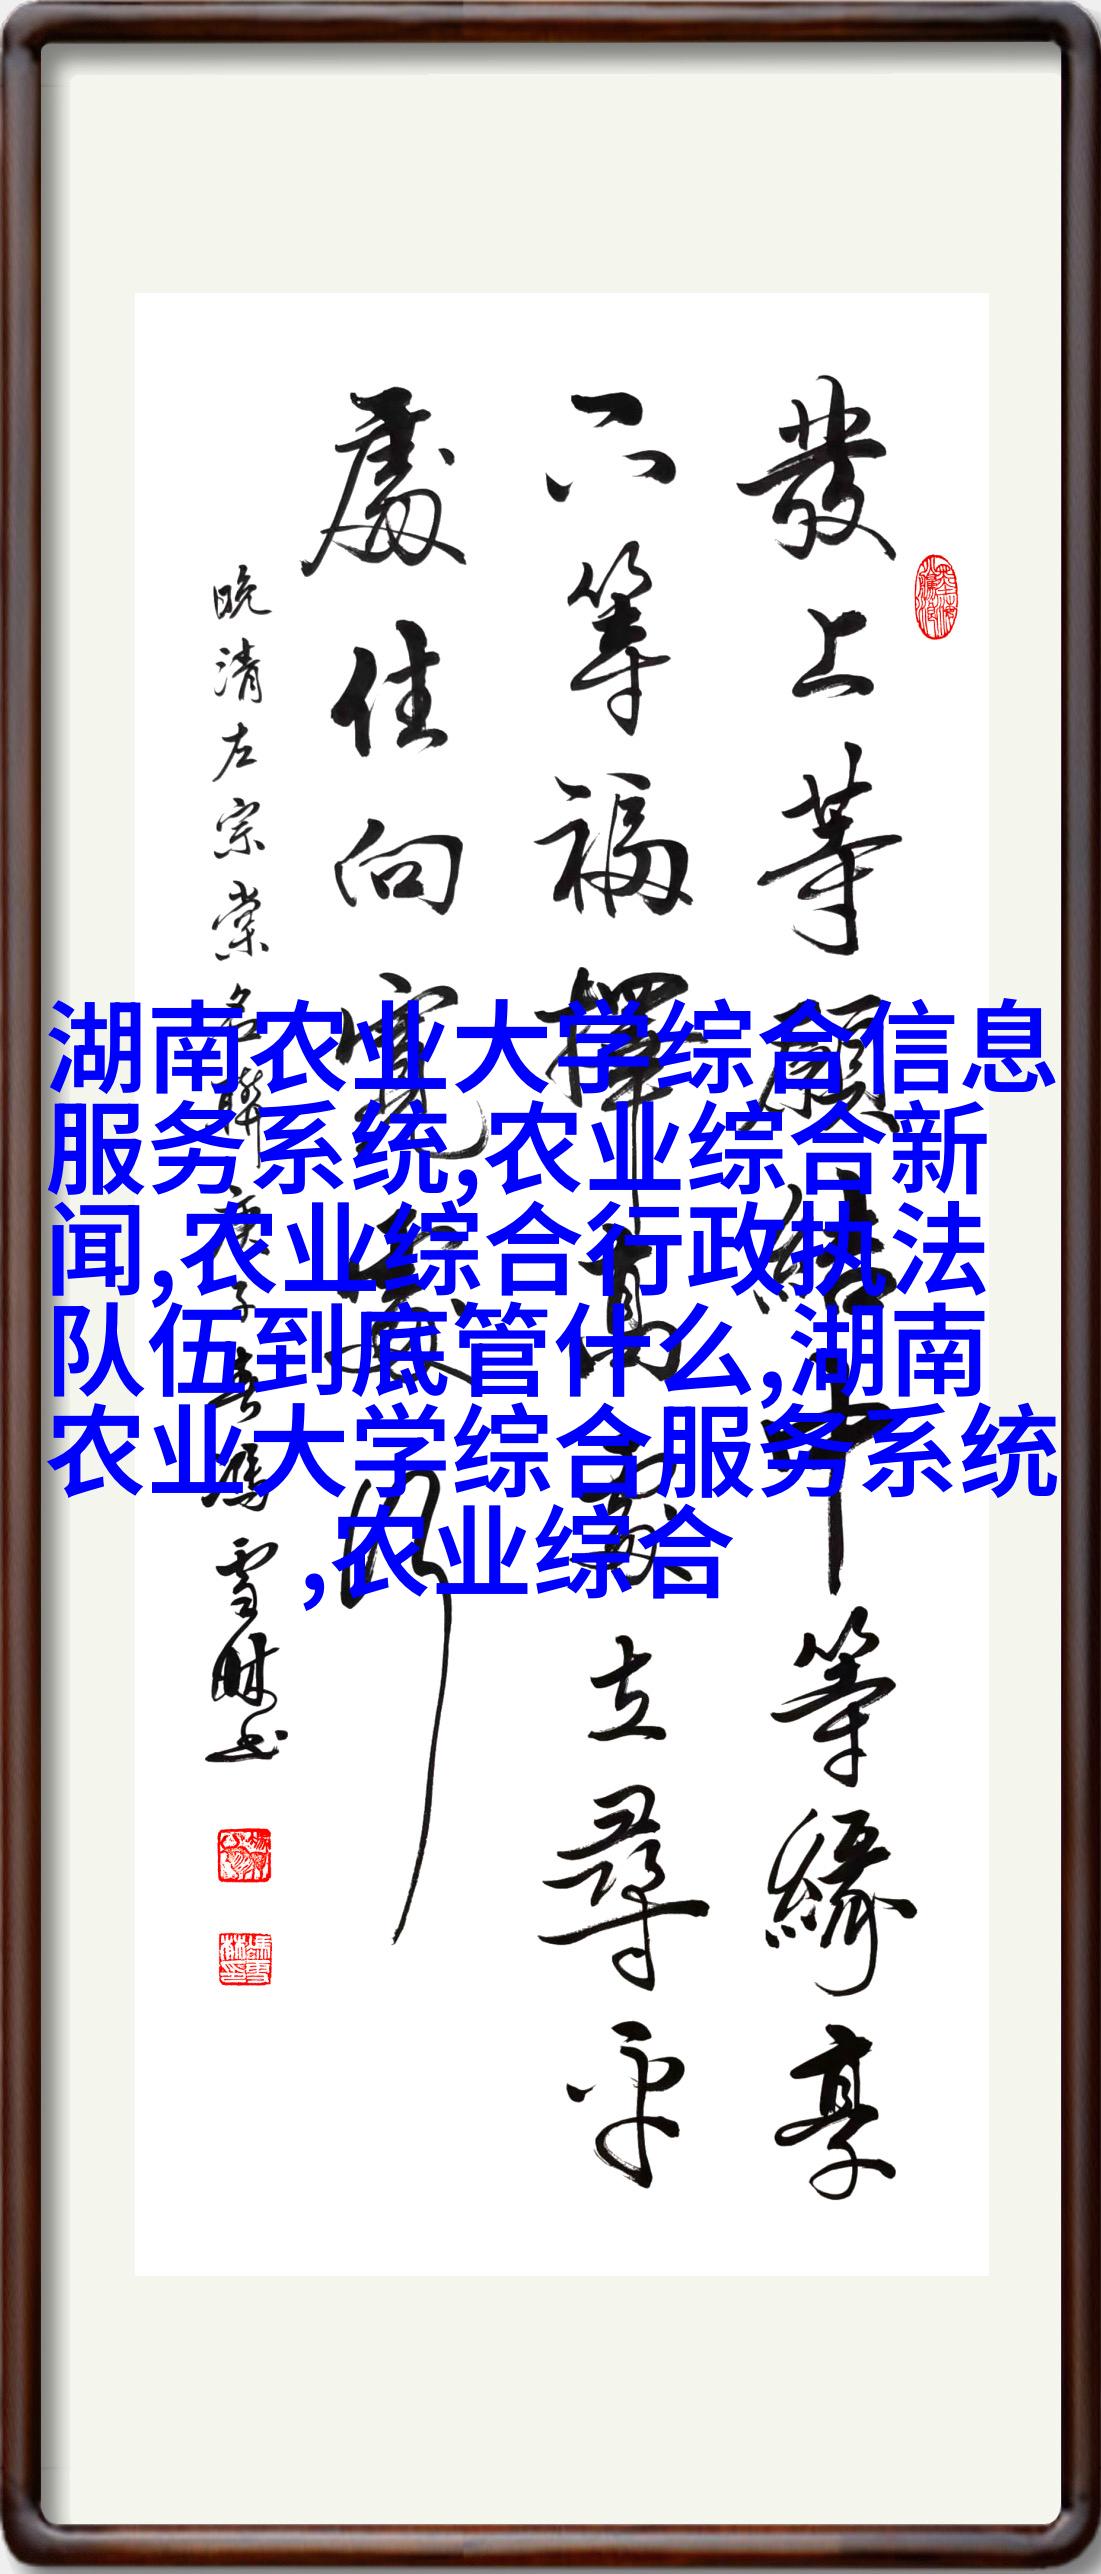 發上等願結中等緣享
下等福擇高處立尋平
處住向寬處行
晚清左宗棠名聯庚子春馮雪林书
湖南农业大学综合信息
服务系统,农业综合新
闻,农业综合行政执法
队伍到底管什么,湖南
农业大学综合服务系统
,农业综合